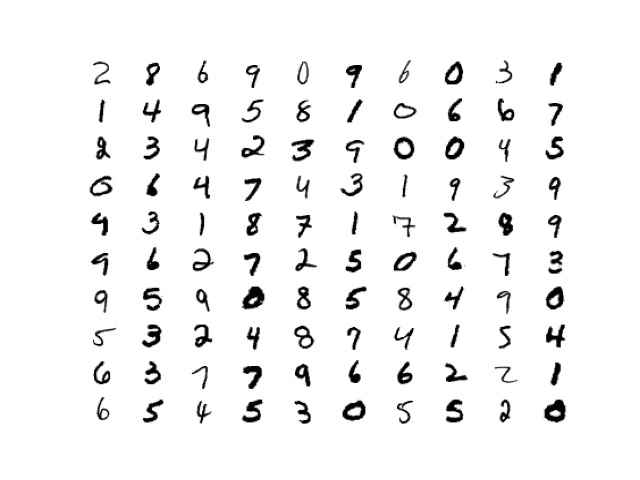 2 8 6 9 0 9 6 0 3 1
1 4 9 5 8 1 0 6 6 7
2 3 4 2 3 9 0 0 4 5
0 6 4 7 4 3 1 9 3 9
9 3 1 8 7 1 7 2 8 9
9 6 2 7 2 5 0 6 7 3
9 5 9 0 8 5 8 4 9 0
5 3 2 4 8 7 4 1 5 4
6 3 7 7 9 6 6 2 2 1
6 5 4 5 3 0 5 5 2 0